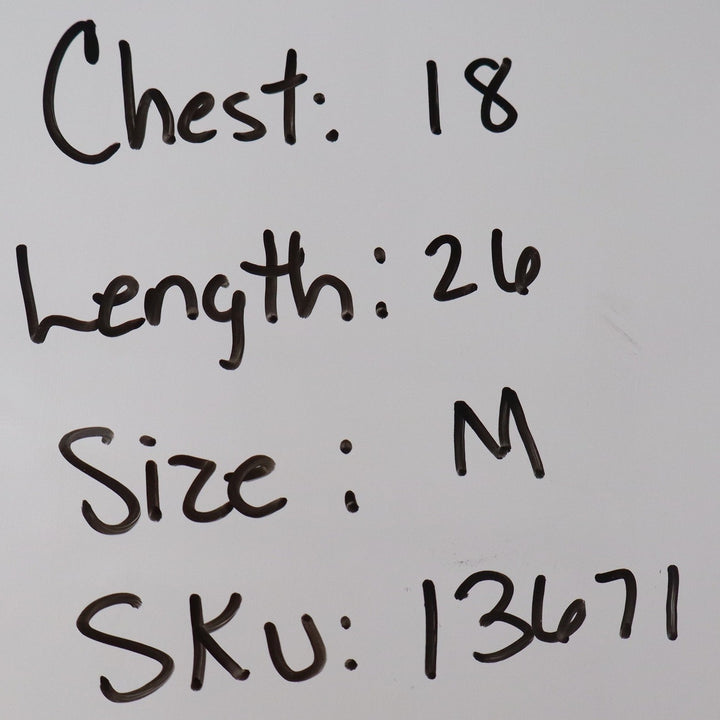 Chest: 18
Length: 26
Size: M
SKU: 13671